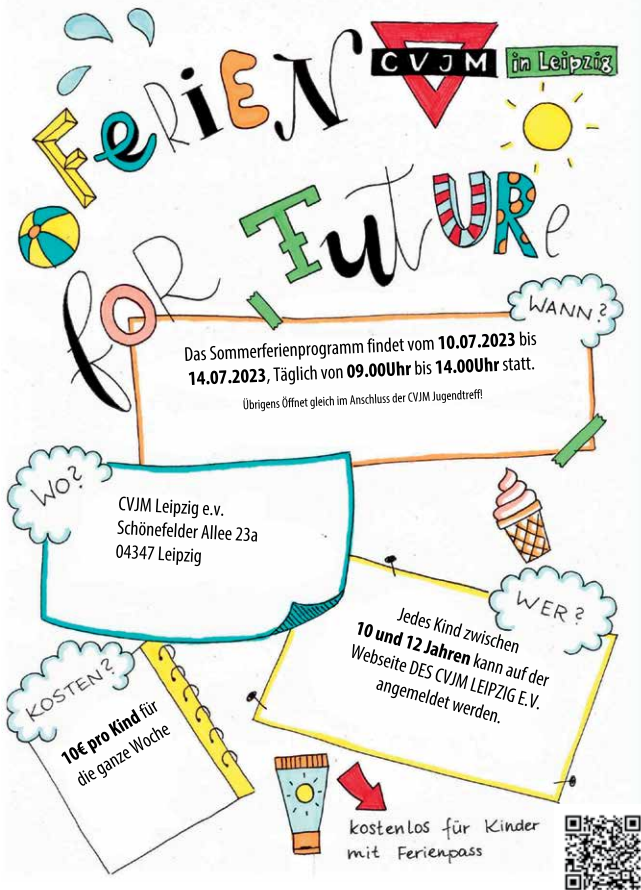 FeRiEN
CVJM in Leipzig
foR FutuRe
WANN?
Das Sommerferienprogramm findet vom 10.07.2023 bis
14.07.2023, Täglich von 09.00Uhr bis 14.00Uhr statt.
Übrigens Öffnet gleich im Anschluss der CVJM Jugendtreff!
WO?
CVJM Leipzig e.v.
Schönefelder Allee 23a
04347 Leipzig
WER?
Jedes Kind zwischen
10 und 12 Jahren kann auf der
Webseite DES CVJM LEIPZIG E.V.
angemeldet werden.
KOSTEN?
10€ pro Kind für
die ganze Woche
kostenlos für Kinder
mit Ferienpass